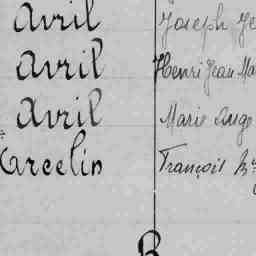 Avril Joseph
Avril Henri Jean Ma
Avril Marie Ange
arcelin François
B